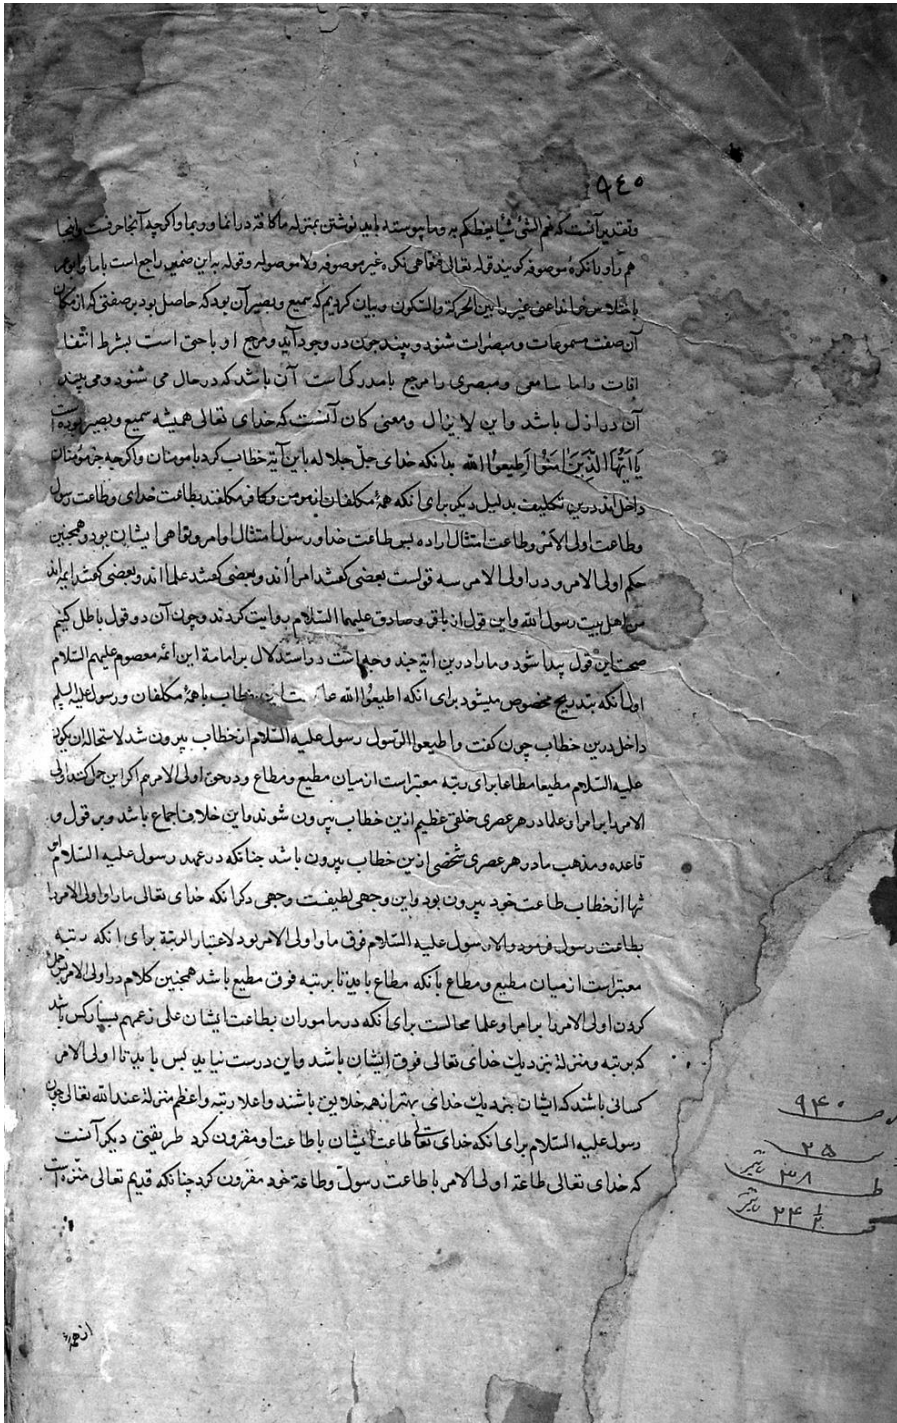 ۹٤٥
وتقدیر آنست که نعم الشئ شیأ یعظکم به وما پیوسته باید نوشتن بمنزله ما کافه در انما وربما واکرچه آنجا حرفست واینجا
هم شاید یا نکرهٔ موصوفه کویند قوله تعالی فنعما هی نکره غیر موصوفه ولا موصوله وقوله به این ضمیر راجع است باما وابوعمر
باختلاس خواند اعنی غیر را بین الحرکة والسکون وبیان کردیم که سمیع وبصیر آن بود که حاصل بود بر صفتی که از مکان
آن صفت مسموعات ومبصرات شنود وبیند چون در وجود آید ومرجع او باحیی است بشرط انتفاء
افات واما سامعی ومبصری را مرجع بامدرکی است آن باشد که در حال می شنود ومی بیند
آن در ازل باشد واین لا یزال ومعنی کان آنست که خدای تعالی همیشه سمیع وبصیر بوده است
یَا اَیُّهَا الَّذِینَ اٰمَنُوا اَطِیعُوا اللّه بدانکه خدای جلّ جلاله باین آیة خطاب کرد بامومنان واکرچه جز مؤمنان
داخل اند درین تکلیف بدلیل دیکر برای انکه همهٔ مکلفان از مومن وکافر مکلفند بطاعت خدای وطاعت رسول
وطاعت اولی الامر وطاعت امتثال اراده بس طاعت خدا ورسول امتثال اوامر ونواهی ایشان بود وهمچنین
حکم اولی الامر ودر اولی الامر سه قولست بعضی کفتند امرأ اند وبعضی کفتند علما اند وبعضی کفتند ایمه اند
من اهل بیت رسول الله واین قول از باقر وصادق علیهما السّلام روایت کردند وچون آن دو قول باطل کنیم
صحت این قول پیدا شود ومارا درین ایة چند وجهاست در استدلال بر امامة این ائمه معصوم علیهم السّلام
اول آنکه بتدریج مخصوص میشود برای انکه اطیعُوا الله خطاب باهمهٔ مکلفان ورسول علیه السلم
داخل درین خطاب چون کفت واطیعوا الرّسول رسول علیه السّلام از خطاب بیرون شد لاستحالة ان یکون
علیه السّلام مطیعا مطاعا برای رتبه معتبر است از میان مطیع ومطاع ودر حق اولی الامر هم اکر این حمل کنند اولی
الامر را بر امرا وعلما در هر عصری خلقی عظیم ازین خطاب بیرون شوند واین خلاف اجماع باشد وبر قول و
قاعده ومذهب ما در هر عصری شخصی ازین خطاب بیرون باشد چنانکه در عهد رسول علیه السّلام او
تنها از خطاب طاعت خود بیرون بود واین وجهی لطیفست وجهی دکر انکه خدای تعالی مارا واولی الامر را
بطاعت رسول فرمود والا رسول علیه السّلام فوق ما واولی الامر بود لاعتبار الرتبة برای انکه رتبه
معتبر است از میان مطیع ومطاع بانکه مطاع باید تا برتبه فوق مطیع باشد همچنین کلام در اولی الامر بس حمل
کردن اولی الامر را بر امرا وعلما محالست برای انکه در ماموران بطاعت ایشان علی زعمهم بسیار کس باشد
که برتبه ومنزلة نزدیك خدای تعالی فوق ایشان باشد واین درست نیاید بس باید تا اولی الامر
کسانی باشند که ایشان بنزدیك خدای بهتر از همه خلایق باشند واعلا رتبه واعظم منزلة عند الله تعالی چون
رسول علیه السّلام برای انکه خدای تعالی طاعت ایشان باطاعت او مقرون کرد طریقتی دیکر آنست
که خدای تعالی طاعة اولی الامر باطاعت رسول وطاعة خود مقرون کرد چنانکه قدیم تعالی منزه است
از همهٔ
۹۴۰
۲۵
ط ۳۸
۲۴ ۱/۲